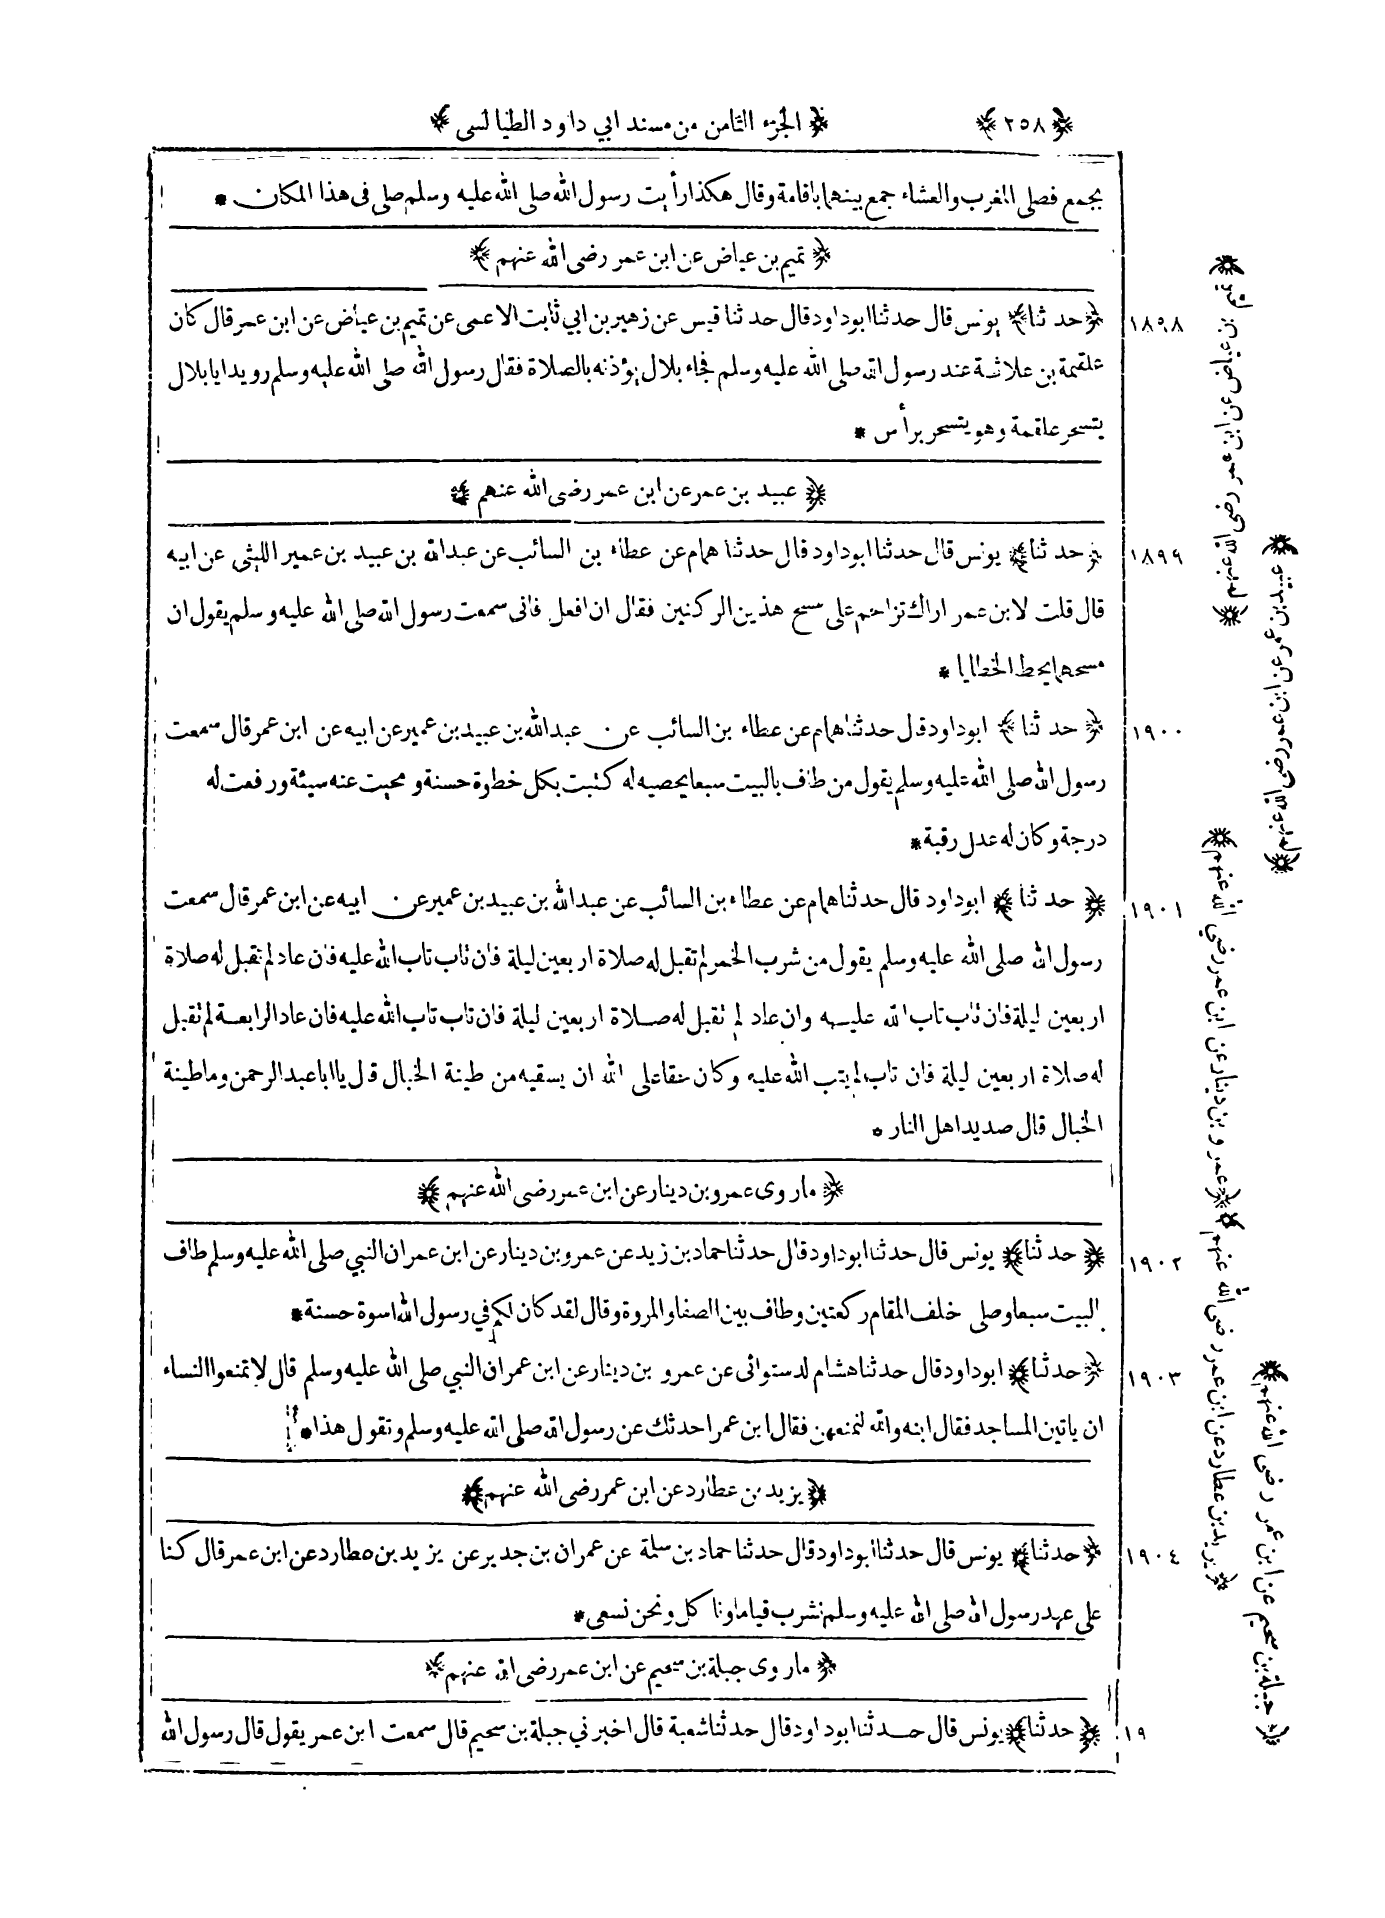 ﴿ ٢٥٨ ﴾ ﴿ الجزء الثامن من مسند ابي داود الطيالسى ﴾
بجمع فصلى المغرب والعشاء جمع بينهما باقامة وقال هكذا رأيت رسول الله صلى الله عليه وسلم صلى فى هذا المكان *
﴿ تميم بن عياض عن ابن عمر رضى الله عنهم ﴾
١٨٩٨ ﴿ حدثنا ﴾ يونس قال حدثنا ابو داود قال حدثنا قيس عن زهير بن ابي ثابت الاعمى عن تميم بن عياض عن ابن عمر قال كان
علقمة بن علاثة عند رسول الله صلى الله عليه وسلم فجاء بلال يؤذنه بالصلاة فقال رسول الله صلى الله عليه وسلم رويدا يا بلال
يتسحر علقمة وهو يتسحر برأس *
﴿ عبيد بن عمر عن ابن عمر رضى الله عنهم ﴾
١٨٩٩ ﴿ حدثنا ﴾ يونس قال حدثنا ابو داود قال حدثنا همام عن عطاء بن السائب عن عبدالله بن عبيد بن عمير الليثى عن ابيه
قال قلت لابن عمر اراك تزاحم على مسح هذين الركنين فقال ان افعل فانى سمعت رسول الله صلى الله عليه وسلم يقول ان
مسحهما يحط الخطايا *
١٩٠٠ ﴿ حدثنا ﴾ ابو داود قال حدثنا همام عن عطاء بن السائب عن عبدالله بن عبيد بن عمير عن ابيه عن ابن عمر قال سمعت
رسول الله صلى الله عليه وسلم يقول من طاف بالبيت سبعا يحصيه له كتبت بكل خطوة حسنة ومحيت عنه سيئة ورفعت له
درجة وكان له عدل رقبة *
١٩٠١ ﴿ حدثنا ﴾ ابو داود قال حدثنا همام عن عطاء بن السائب عن عبدالله بن عبيد بن عمير عن ابيه عن ابن عمر قال سمعت
رسول الله صلى الله عليه وسلم يقول من شرب الخمر لم تقبل له صلاة اربعين ليلة فان تاب تاب الله عليه فان عاد لم تقبل له صلاة
اربعين ليلة فان تاب تاب الله عليه وان عاد لم تقبل له صلاة اربعين ليلة فان تاب تاب الله عليه فان عاد الرابعة لم تقبل
له صلاة اربعين ليلة فان تاب لم يتب الله عليه وكان حقا على الله ان يسقيه من طينة الخبال قال يا ابا عبدالرحمن وما طينة
الخبال قال صديد اهل النار *
﴿ ماروى عمرو بن دينار عن ابن عمر رضى الله عنهم ﴾
١٩٠٢ ﴿ حدثنا ﴾ يونس قال حدثنا ابو داود قال حدثنا حماد بن زيد عن عمرو بن دينار عن ابن عمر ان النبي صلى الله عليه وسلم طاف
البيت سبعا وصلى خلف المقام ركعتين وطاف بين الصفا والمروة وقال لقد كان لكم في رسول الله اسوة حسنة *
١٩٠٣ ﴿ حدثنا ﴾ ابو داود قال حدثنا هشام لدستوائى عن عمرو بن دينار عن ابن عمر ان النبي صلى الله عليه وسلم قال لا تمنعوا النساء
ان ياتين المساجد فقال ابنه والله لنمنعهن فقال ابن عمر احدثك عن رسول الله صلى الله عليه وسلم وتقول هذا *
﴿ يزيد بن عطارد عن ابن عمر رضى الله عنهم ﴾
١٩٠٤ ﴿ حدثنا ﴾ يونس قال حدثنا ابو داود قال حدثنا حماد بن سلمة عن عمران بن جدير عن يزيد بن عطارد عن ابن عمر قال كنا
على عهد رسول الله صلى الله عليه وسلم نشرب قياما وناكل ونحن نسعى *
﴿ ماروى جبلة بن سحيم عن ابن عمر رضى الله عنهم ﴾
١٩ ﴿ حدثنا ﴾ يونس قال حدثنا ابو داود قال حدثنا شعبة قال اخبرني جبلة بن سحيم قال سمعت ابن عمر يقول قال رسول الله
بن عياض عن ابن عمر رضى الله عنهم ﴾
﴿ عبيد بن عمر عن ابن عمر رضى الله عنهم ﴾
﴿ عمرو بن دينار عن ابن عمر رضي الله عنهم ﴾
﴿ يزيد بن عطارد عن ابن عمر رضى الله عنهم ﴾
﴿ جبلة بن سحيم عن ابن عمر رضى الله عنهم ﴾